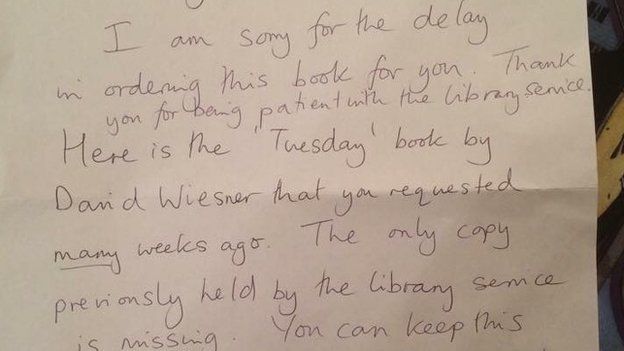 I am sorry for the delay
in ordering this book for you. Thank
you for being patient with the library service.
Here is the 'Tuesday' book by
David Wiesner that you requested
many weeks ago. The only copy
previously held by the library service
is missing. You can keep this